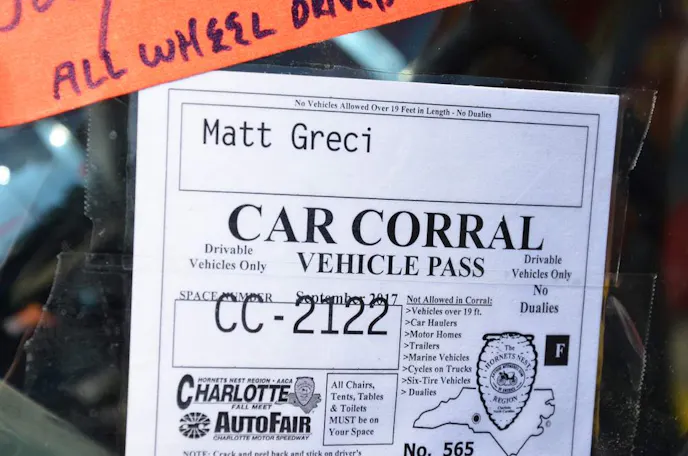 ALL WHEEL DRIVE
No Vehicles Allowed Over 19 Feet in Length - No Dualies
Matt Greci
CAR CORRAL
Drivable
Vehicles Only
VEHICLE PASS
Drivable
Vehicles Only
No
Dualies
SPACE NUMBER
September 2017
CC-2122
Not Allowed in Corral:
>Vehicles over 19 ft.
>Car Haulers
>Motor Homes
>Trailers
>Marine Vehicles
>Cycles on Trucks
>Six-Tire Vehicles
> Dualies
F
The
HORNETS NEST
REGION
HORNETS NEST REGION - AACA
CHARLOTTE
FALL MEET
AUTOFAIR
CHARLOTTE MOTOR SPEEDWAY
All Chairs,
Tents, Tables
& Toilets
MUST be on
Your Space
No. 565
NOTE: Crack and peel back and stick on driver's